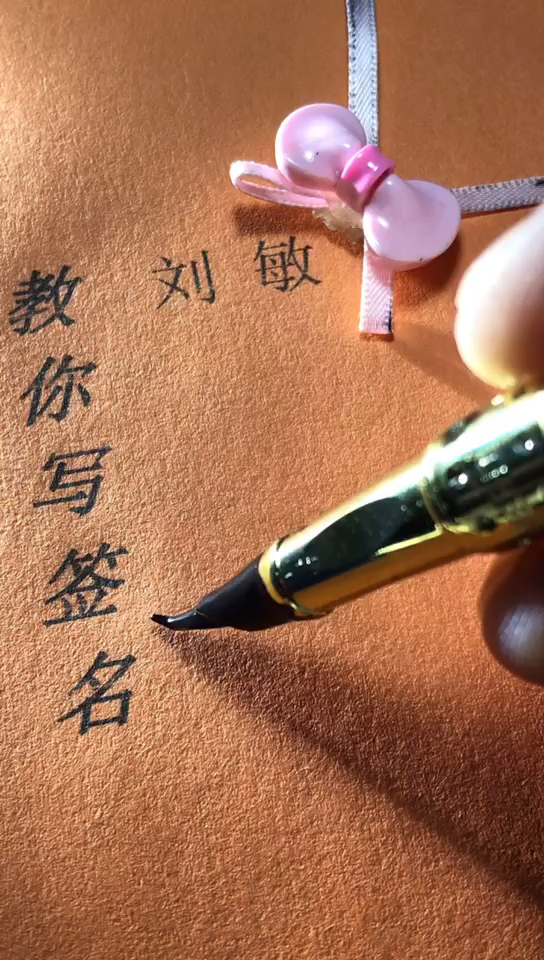 教你写签名
刘敏